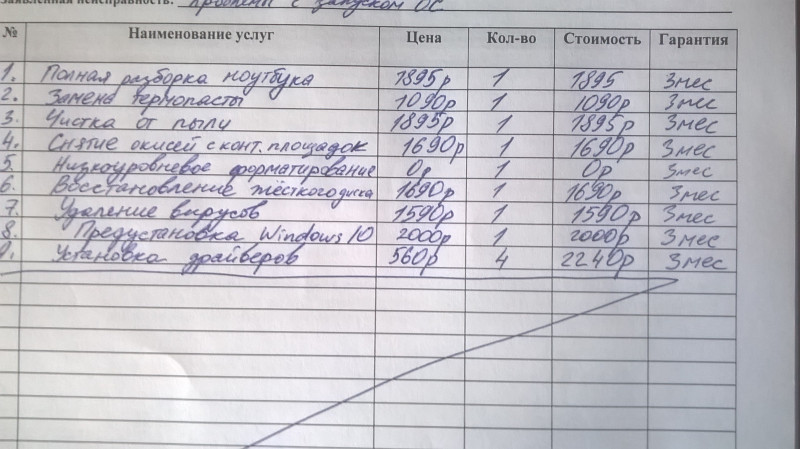 Заявленная неисправность: проблемы с запуском ОС
№ Наименование услуг Цена Кол-во Стоимость Гарантия
1. Полная разборка ноутбука 1895р 1 1895 3мес
2. Замена термопасты 1090р 1 1090р 3мес
3. Чистка от пыли 1895р 1 1895р 3мес
4. Снятие окисей с конт. площадок 1690р 1 1690р 3мес
5. Низкоуровневое форматирование 0р 1 0р 3мес
6. Восстановление жёсткого диска 1690р 1 1690р 3мес
7. Удаление вирусов 1590р 1 1590р 3мес
8. Предустановка Windows 10 2000р 1 2000р 3мес
9. Установка драйверов 560р 4 2240р 3мес